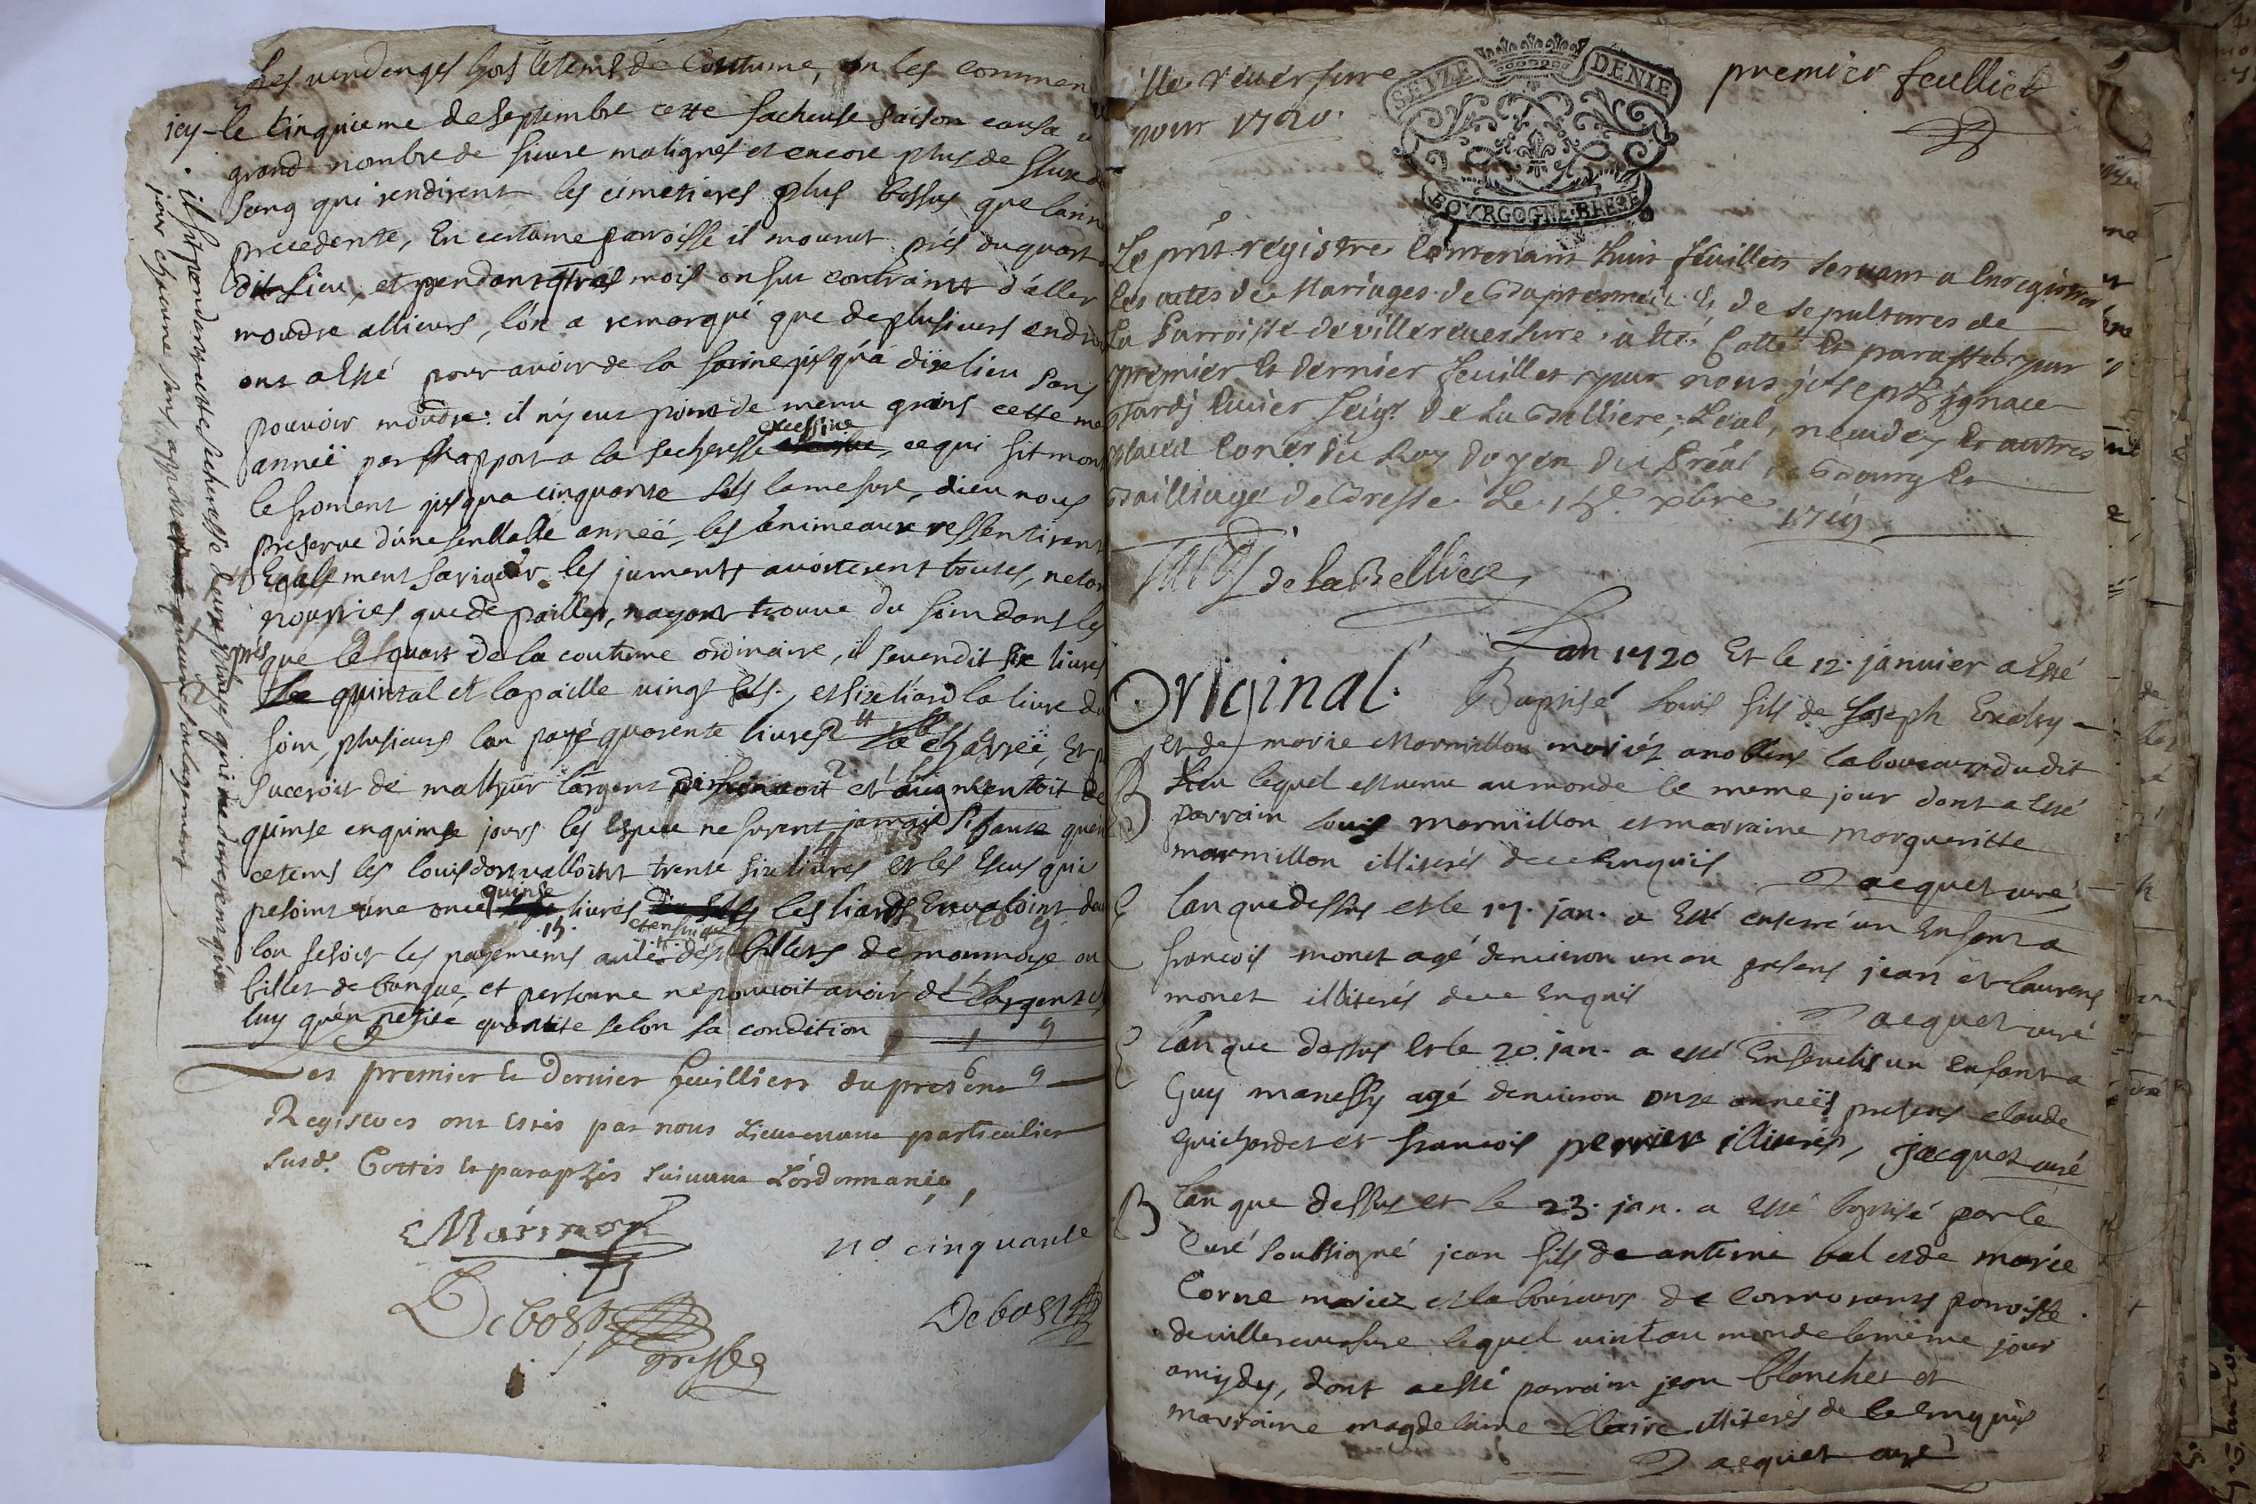 Les vendenges hors letems de Coutume, on les commen
icy - le cinquieme de septembre cette facheuse saison causa u
grand nombre de fievre malignes et encore plus de fluxe de
sang qui rendirent les cimetieres plus bossus que lanne
precedente, En certaine parroisse il mourut prés du quart
dit lieu, et pendant trois mois on fut contraint d'aller
moudre allieurs, lon a remarqué que de plusieurs endroi
ont alsté pour avoir de la farine jusqu'a dixe lieu sans
pouvoir moudre. il n'y eut point de menu grains cette me
anneé par Rapport a la secheresse excessive, ce qui fit mont
le froment jusqua cinquante sols la mesure, dieu nous
preserve d'une semblable anneé, les animeaux ressentirent
Egalement sa rigueur les juments avorterent toutes, netan
nourries que de pailles, nayant trouvé du foin dans les
prés que le quart de la coutume ordinaire, il se vendit six livres
le quintal et la paille vingt sols, et six liard la livre du
foin, plusieurs lon payé quarente livres la charreé, Et p
succroit de malheur largent diminuoit et augmentoit de
quinse en quinse jours les Espece ne furent jamais si haute quen
cetems les louisdor valloint trente six livres et les Escus qui
pesoint une once quinse livres les liards En valoint deu
15.
lon fesoit les payements avec des billets de monnoye ou
billet de banque, et personne ne pouvoit avoir de Largent ch
luy qu'en petite quantité selon sa condition
. il fit pendant cette secheresse deux
jour chacune sans apporter aucun soulagement
Les premier et dernier feuilliers du present
Registres ont estés par nous Lieutenant particulier
susd. Cottés et paraphés suivant L'ordonnance,
Marmont
no cinquante
Debost
Debost
greffier
ville reversure
pour 1720.
SEIZE DENIE
BOVRGOGNE BRESSE
premier feulliet
Le pnt registre Contenant huit feuillets servant a Enregistrer
Les actes de Mariages de Baptesmes et de sepultures de
La Parroisse de villereversure a été Cotté Et paraffé par
premier Et dernier feuillet par nous joseph ignace
Tardy Escuier seigr De La Belliere, Leal, neudey Et autres
places Coner du Roy Doyen du Preal de Bourg Et
Bailliage de Bresse Le 18e xbre
1719
Tardy de la Belliere
Original.
Lan 1720 Et le 12. janvier a Esté
Baptisé Louis fils de Joseph
et de marie Marmillon mariéz laboureurs dudit
Lieu lequel est venu au monde le meme jour dont a Esté
B
parrain Louis Marmillon et marraine Margueritte
marmillon illiterés de ce Enquis
Jacquet curé
E
Lan que dessus et le 17. jan. a Esté enterré un Enfant a
francois monet agé denviron un an presens jean et laurens
monet illiterés de ce Enquis
Jacquet curé
E
Lan que dessus et le 20. jan. a esté Ensevelis un Enfant a
Guy manessy agé denviron onze anneés presens claude
guichardet et francois perrier illiterés, Jacquet curé
B
Lan que dessus et le 23. jan. a Esté baptisé par le
Curé soussigné jean fils de anteine bal et de marie
Corne mariez et laboureurs de Cormorants paroisse
de villereversure lequel vint au monde le même jour
a mydy, dont a esté parrain jean blanchet et
marraine magdelaine Claire illiterés de ce Enquis
Jacquet curé